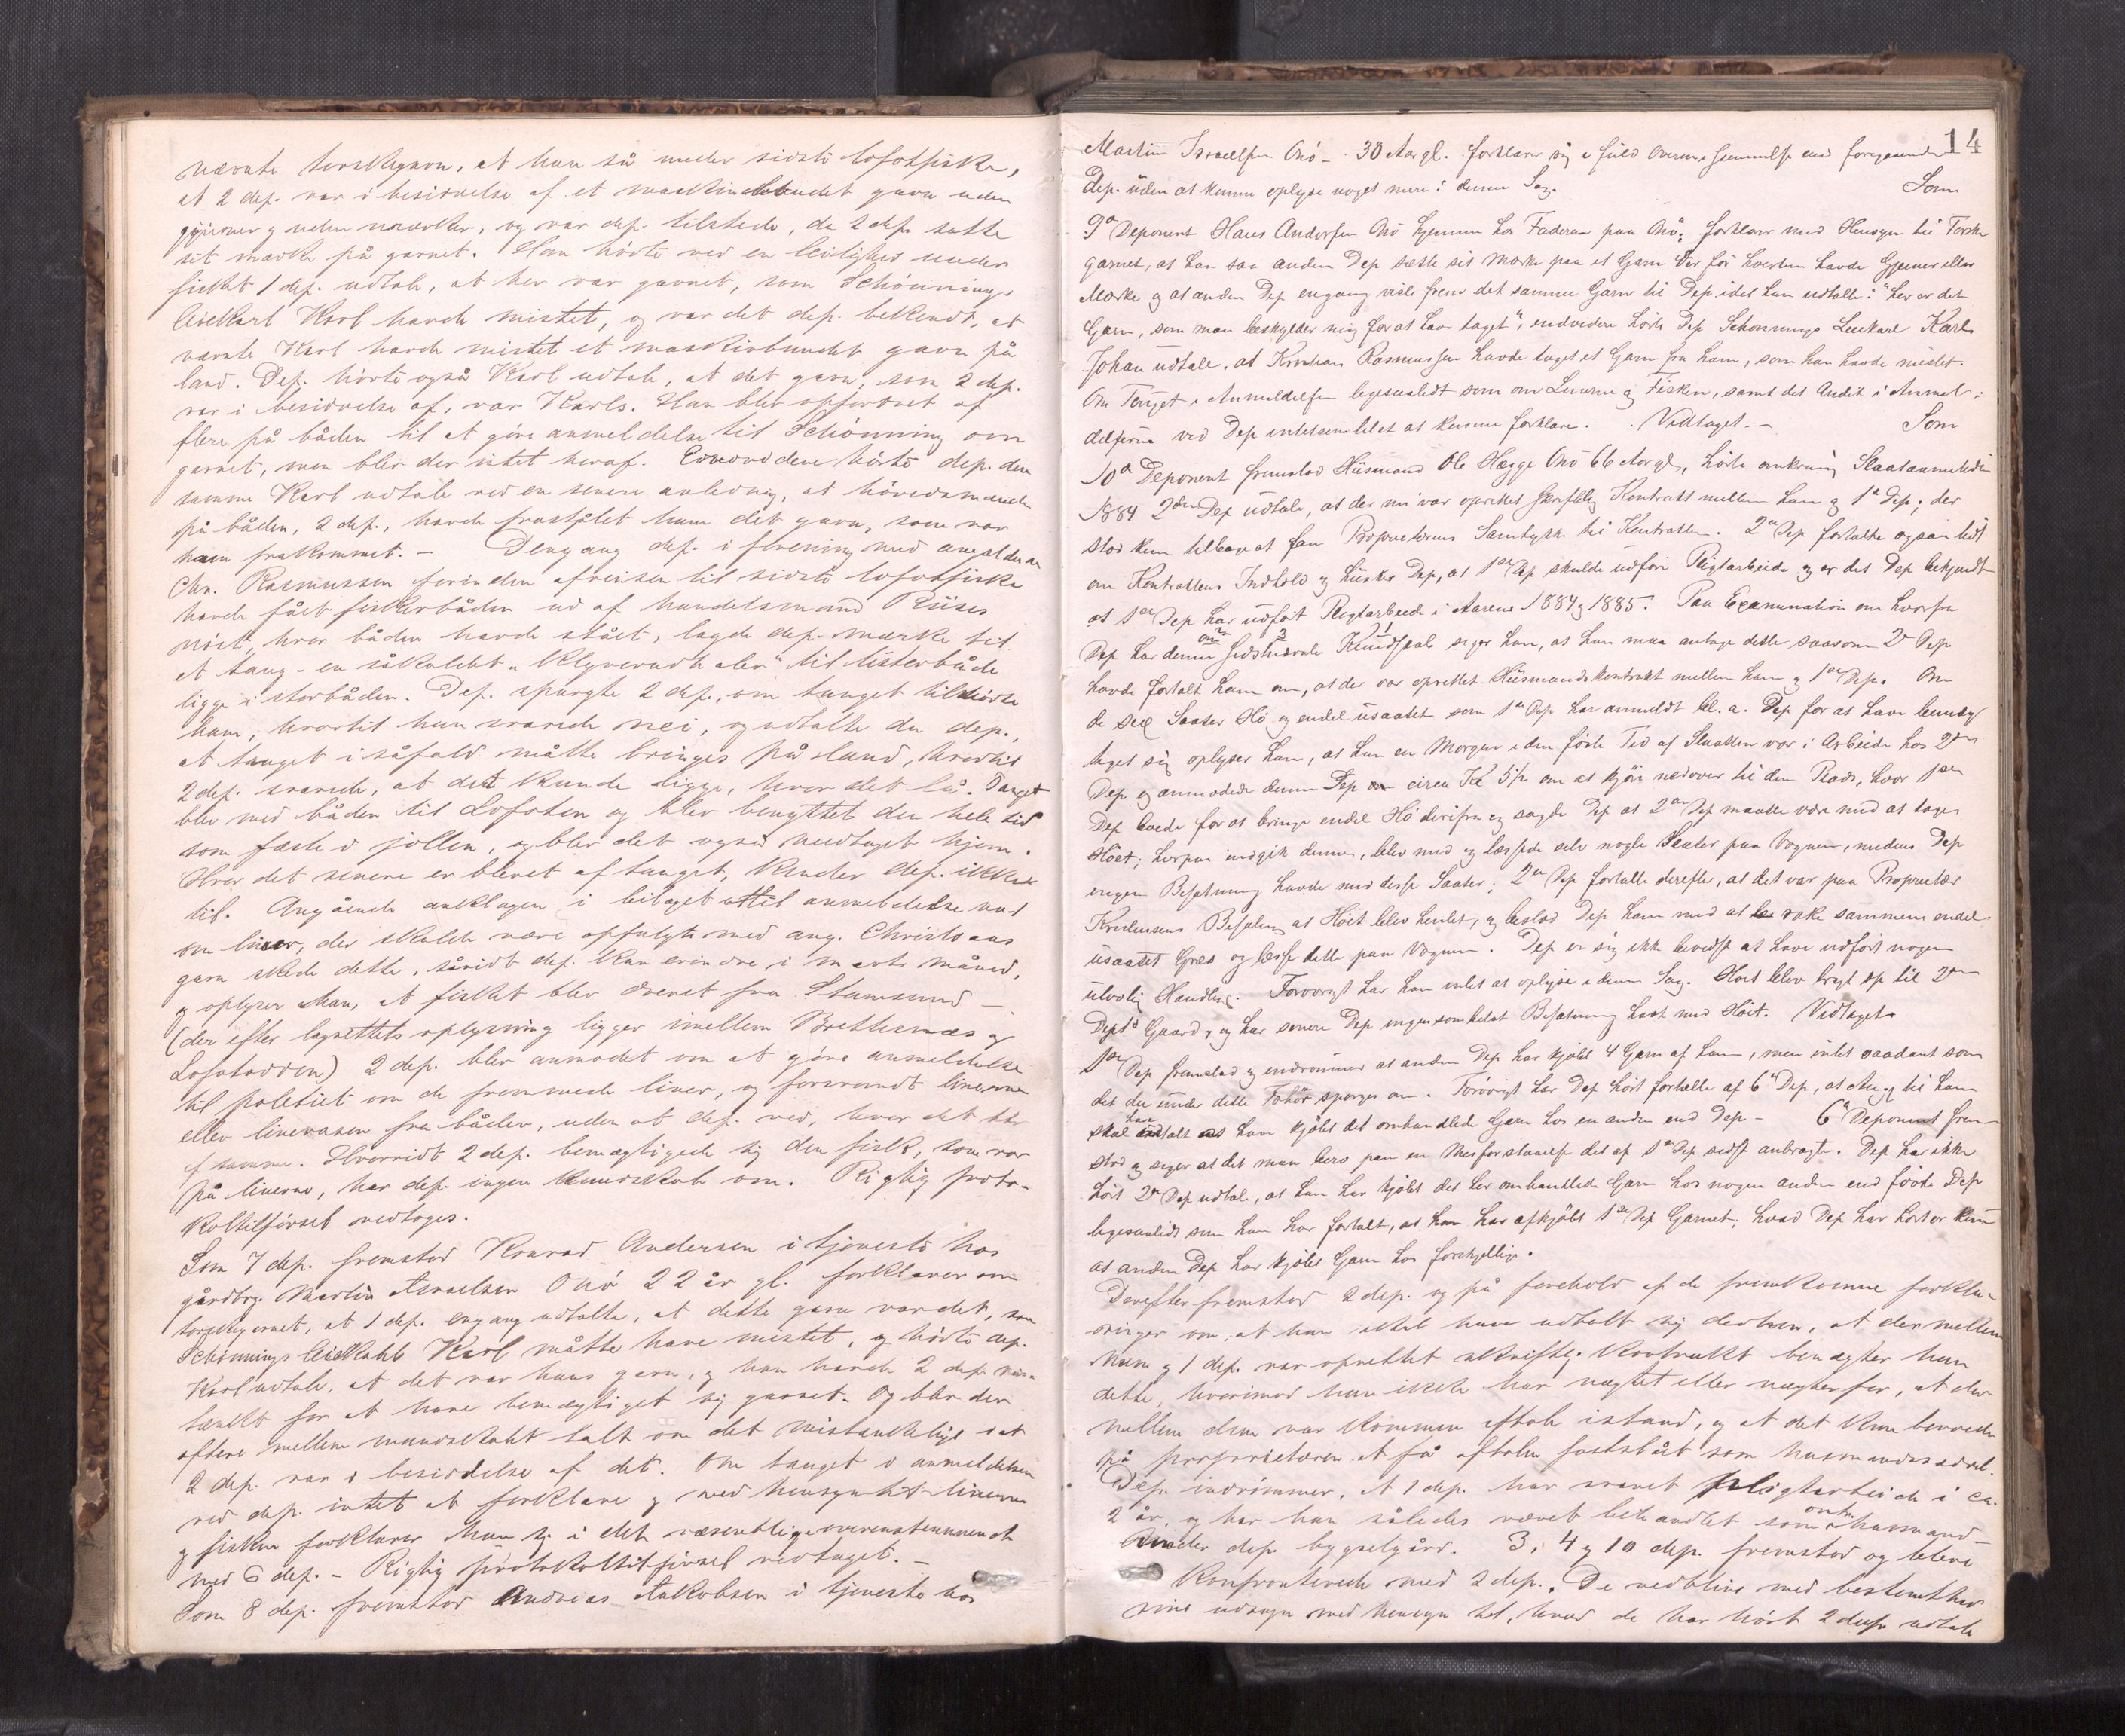 nævnte torskegarn, at han så under sidste lofotfiske,
at 2 dep. var i besiddelse af et maskinbundet garn uden
gjiener og uden mærker, og var dep. tilstede, da 2 dep. satte
sit mærke på garnet. Han hørte ved en leilighed under
fisket 1 dep. udtale, at her var garnet, som Schønnings
leiekarl Karl havde mistet, og var det dep. bekendt, at
nævnte Karl havde mistet et maskinbundet garn på
land. Dep. hørte også Karl udtale, at det garn, som 2 dep.
var i besiddelse af, var Karls. Han blev opfordret af
flere på båden til at gøre anmeldelse til Schønning om
garnet, men blev der intet heraf. Endvidere hørte dep. den
samme Karl udtale ved en senere anledning, at hövedsmanden
på båden, 2 dep., havde frastjålet ham det garn, som var
ham frakommet. - Dengang dep. i forening med
Chr. Rasmussen forinden afreisen til sidste lofotfiske
havde fået fiskerbåden ud af handelsmand Riises
nøst, hvor båden havde stået, lagde dep. mærke til
et taug - en såkaldt "Klyver" til listerbåde
ligge i storbåden. Dep. spurgte 2 dep., om tauget tilhørte
ham, hvortil han svarede nei, og udtalte da dep.,
at tauget i såfald måtte bringes på land, hvortil
2 dep. svarede, at det kunde ligge, hvor det lå. Tauget
blev med båden til Lofoten og blev benyttet den hele tid
som fæste i jollen, og blev det også medtaget hjem.
Hvor det senere er blevet af tauget, kender dep. ikke
til. Angående anklagen i bilaget til anmeldelse
om liner, der skulde være opfulgte med ang. Christians
garn skede dette, såvidt dep. kan erindre, i marts måned,
og oplyser han, at fisket blev drevet fra Stamsund -
(der efter lagrettets oplysning ligger imellem Brettesnæs og
Lofotodden) 2 dep. blev anmodet om at gøre anmeldelse
til politiet om de fremmede liner, og forsvandt linerne
eller linevasen fra båden, uden at dep. ved, hvor det blev
af samme. Hvorvidt 2 dep. bemægtigede sig den fisk, som var
på linerne, har dep. ingen kundskab om. Rigtig proto-
koltilførsel vedtoges.
Som 7 dep. fremstod Konrad Andersen i tjeneste hos
gårdbrg. Martin Israelsen Onø 22 år gl. forklarer om
torskegarnet, at 1 dep. engang udtalte, at dette garn var det, som
Schønnings leiekarl Karl måtte have mistet, og hørte dep.
Karl udtale, at det var hans garn, og han havde 2 dep. mis-
tænkt for at have bemægtiget sig garnet. Og blev der
oftere mellem mandskabet talt om det mistænkelige i at
2 dep. var i besiddelse af det. Om tauget i anmeldelsen
ved dep. intet at forklare og med hensyn til linerne
og fisken forklarer han sig i det væsentlige overensstemmende
med 6 dep. - Rigtig protokoltilførsel vedtaget. -
Som 8 dep. fremstod Andreas Jakobsen i tjeneste hos
14
Martin Israelsen Onö - 30 Aar gl. forklarer sig i fuld Overensstemmelse med foregaaende
Dep. uden at kunne oplyse noget mere i denne Sag. Som
9de Deponent Hans Andersen Onö hjemme hos Faderen paa Onö; forklarer med Hensyn til Torske
garnet, at han saa anden Dep sætte sit Mærke paa et Garn der før hverken havde Gjener eller
Mærke og at anden Dep engang viste frem det samme Garn til Dep. idet han udtalte: "her er det
Garn, som man beskylder mig for at have taget", endvidere hørte Dep Schønnings Leiekarl Karl
Johan udtale, at Kristian Rasmussen havde taget et Garn fra ham, som han havde mistet.
Om Touget i Anmeldelsen ligesaalidt som om Linerne og Fisken, samt det Andet i Anmel-
delserne ved Dep intetsomhelst at kunne forklare. Vedtaget. - Som
10de Deponent fremstod Husmand Ole Hegge Onö 66 Aar gl, hørte omkring Slaataannetiden
1884 2den Dep udtale, at der nu var oprettet skriftlig Kontrakt mellem ham og 1ste Dep; der
stod kun tilbage at faa Proprietærens Samtykke til Kontrakten. 2den Dep fortalte ogsaa lidt
om Kontraktens Indhold og husker Dep, at 1ste Dep skulde udføre Pligtarbeide og er det Dep bekjendt
at 1ste Dep har udført Pligtarbeide i Aarene 1884 og 1885. Paa Examination om hvorfra
Dep har denne sidstnævnte Kundskab siger han, at han maa antage dette saasom 2den Dep
havde fortalt ham om, at der var oprettet Husmandskontrakt mellem ham og 1ste Dep. Om
de sex Saater Hö og endel usaatet som 1ste Dep har anmeldt bl. a. Dep for at have bemæg-
tiget sig oplyser han, at han en Morgen i den første Tid af Slaatten var i Arbeide hos 2den
Dep og anmodede denne Dep circa Kl 5½ om at kjøre nedover til den Plads, hvor 1ste
Dep boede for at bringe endel Hö derifra og sagde Dep at 2den Dep maatte være med at tage
Höet; herpaa indgik denne, blev med og læssede selv nogle Saater paa Vognen, medens Dep
ingen Befatning havde med disse Saater; 2den Dep fortalte derefter, at det var paa Proprietær
Kristensens Befaling at Höet blev hentet, og bestod Dep ham med at rake sammen endel
usaatet Græs og læsse dette paa Vognen. Dep er sig ikke bevidst at have udført nogen
ulovlig Handling. Forøvrigt har han intet at oplyse i denne Sag. Höet blev bragt op til 2den
Dept's Gaard, og har senere Dep ingensomhelst Befatning havt med Höet. Vedtaget.
1ste Dep fremstod og indrømmer at anden Dep har kjøbt 4 Garn af ham, men intet saadant som
det der under dette Forhör spørges om. Forøvrigt har Dep hørt fortælle af 6te Dep, at til ham
skal have udtalt at have kjøbt det omhandlede Garn hos en anden end Dep - 6te Deponent frem-
stod og siger at det maa bero paa en Misforstaaelse det af 1ste Dep sidst anbragte. Dep har ikke
hørt 2den Dep udtale, at han har kjøbt det her omhandlede Garn hos nogen anden end første Dep
ligesaalidt som han har fortalt, at han har afkjøbt 1ste Dep Garnet; hvad Dep har hørt er kun
at anden Dep har kjøbt Garn hos forskjellige.
Derefter fremstod 2 dep. og på forehold af de fremkomne forkla-
ringer om, at han skal have udtalt sig derhen, at der mellem
ham og 1 dep. var oprettet skriftlig kontrakt benægter han
dette, hvorimod han ikke har nægtet eller nægter for, at der
mellem dem var kommen aftale istand, og at det kun beroede
på proprietæren at få aftalen fastslået som husmandsseddel.
Dep. indrømmer, at 1 dep. har svaret pligtarbeide i ca.
2 år, og har han således været behandlet som husmand
under dep. bygselgård. 3, 4 og 10 dep. fremstod og bleve
konfronterede med 2 dep. De vedblive med bestemthed
sine udsagn med hensyn til, hvad de har hørt 2 dep. udtale